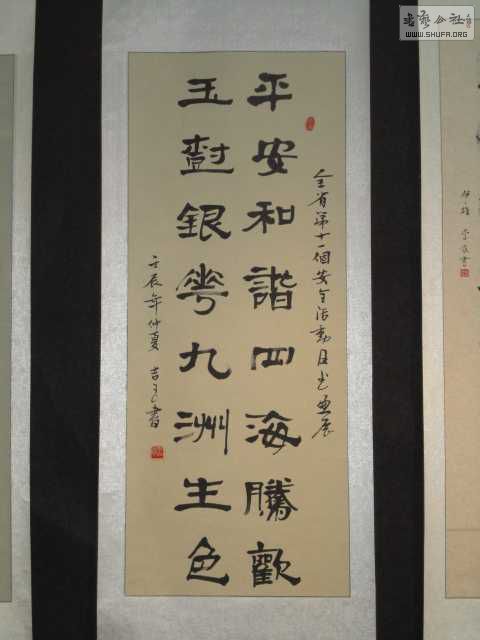 書藝公社
WWW.SHUFA.ORG
全省第十一個安全活動月书画展
平安和諧四海騰歡
玉樹銀花九洲生色
壬辰年仲夏 吉 書